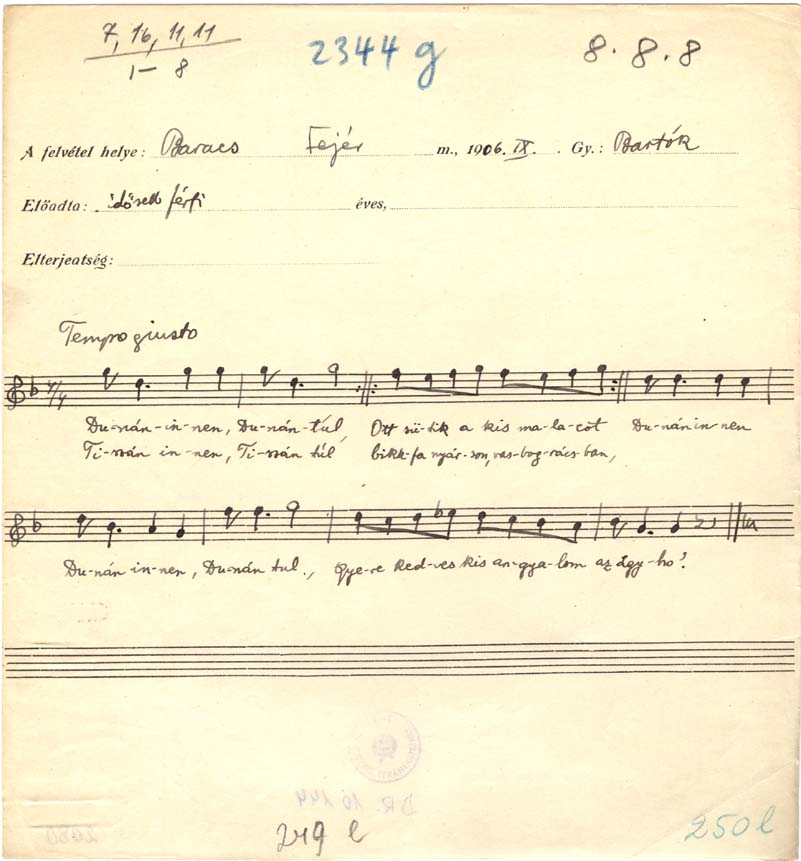 7, 16, 11, 11
1– 8
2344 g
8. 8. 8
A felvétel helye: Baracs Fejér m., 1906. IX. Gy.: Bartók
Előadta: idősebb férfi éves,
Elterjedtség:
Tempo giusto
4/4
Du-nán-in-nen, Du-nán-túl, Ott sü-tik a kis ma-la-cot Du-nán in nen
Ti-szán in-nen, Ti-szán túl bikk-fa nyár-son, vas-bog-rács ban,
Du-nán in-nen, Du-nán tul., Gye-re ked-ves kis an-gya-lom az ágy-ho'.
DR. 10 144
249 l
250 l